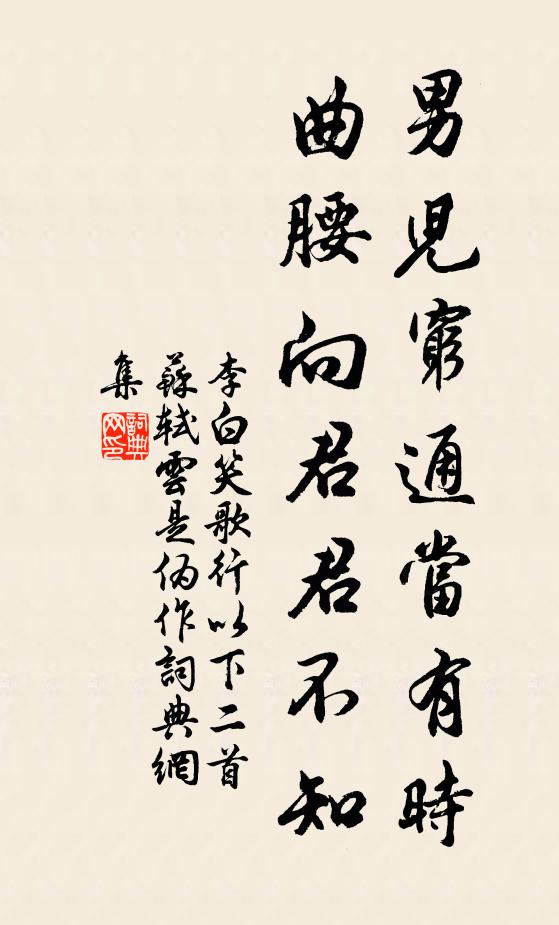 男兒窮通當有時
曲腰向君君不知
李白笑歌行以下二首
蘇軾雲是偽作詞典網
集
詞典
网印